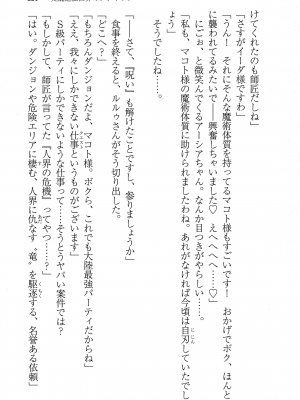 けてくれたのも師匠だしね」
「さすがイーダ様ですわ」
「うん！ それにそんな魔術体質を持ってるマコト様もすごいです！ おかげでボク、ほんと
に襲われるみたいで――興奮しちゃいました♡ えへへへへ……♡」
にごぉ、と微笑んでくるアーシアちゃん。なんか目つきがやらしい……。
「私も、マコト様の魔術体質に助けられましたわね。あれがなければ今頃は自刃していたでし
そうでしたね……。
「――さて、『呪い』も解けたことですし、参りましょうか」
食事を終えると、ルルゥさんがそう切り出した。
「どこへ？」
「もちろんダンジョンだよ、マコト様。ボクら、これでも大陸最強パーティだからね」
「ええ、我々にしかできない仕事というものがございます」
Ｓ級パーティにしかできないような仕事って……そうとうヤバい案件では？
「もしかして、師匠が言ってた『人界の危機』ってやつ……？」
「はい。ダンジョンや危険エリアに棲む、人界に仇なす〝竜〟を駆逐する、名誉ある依頼